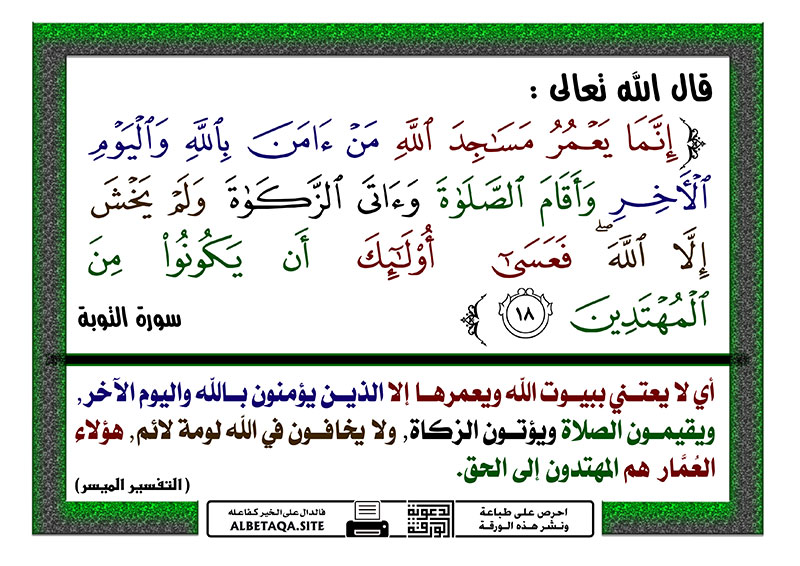 قال الله تعالى :
﴿ إِنَّمَا يَعْمُرُ مَسَٰجِدَ ٱللَّهِ مَنْ ءَامَنَ بِٱللَّهِ وَٱلْيَوْمِ
ٱلْأَخِرِ وَأَقَامَ ٱلصَّلَوٰةَ وَءَاتَى ٱلزَّكَوٰةَ وَلَمْ يَخْشَ
إِلَّا ٱللَّهَ ۖ فَعَسَىٰٓ أُو۟لَٰٓئِكَ أَن يَكُونُوا۟ مِنَ
ٱلْمُهْتَدِينَ ١٨ ﴾ سورة التوبة
أي لا يعتـني ببيـوت الله ويعمرهـا إلا الذيـن يؤمنون بـالله واليوم الآخر,
ويقيمـون الصلاة ويؤتـون الزكـاة, ولا يخافـون في الله لومة لائم, هؤلاء
العُمَّار هم المهتدون إلى الحق.
(التفسير الميسر)
احرص على طباعة
ونشر هذه الورقة
الدعوية
الورقة
فالدال على الخير كفاعله
ALBETAQA.SITE